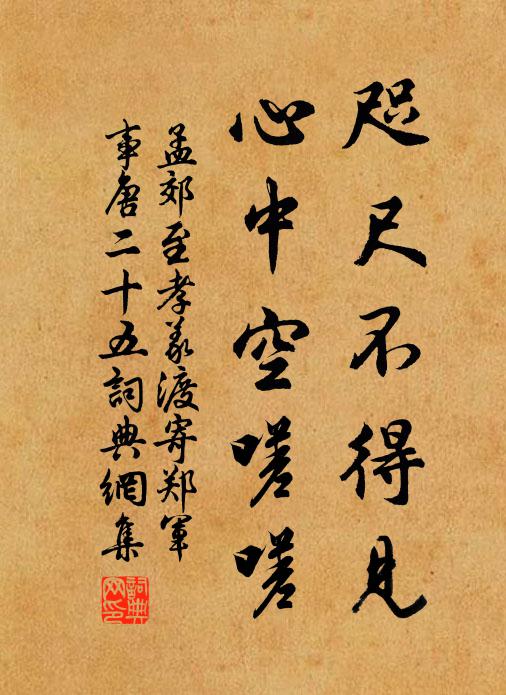 咫尺不得见
心中空嗟嗟
孟郊至孝义渡寄郑军
事唐二十五詞典網集
詞典网印